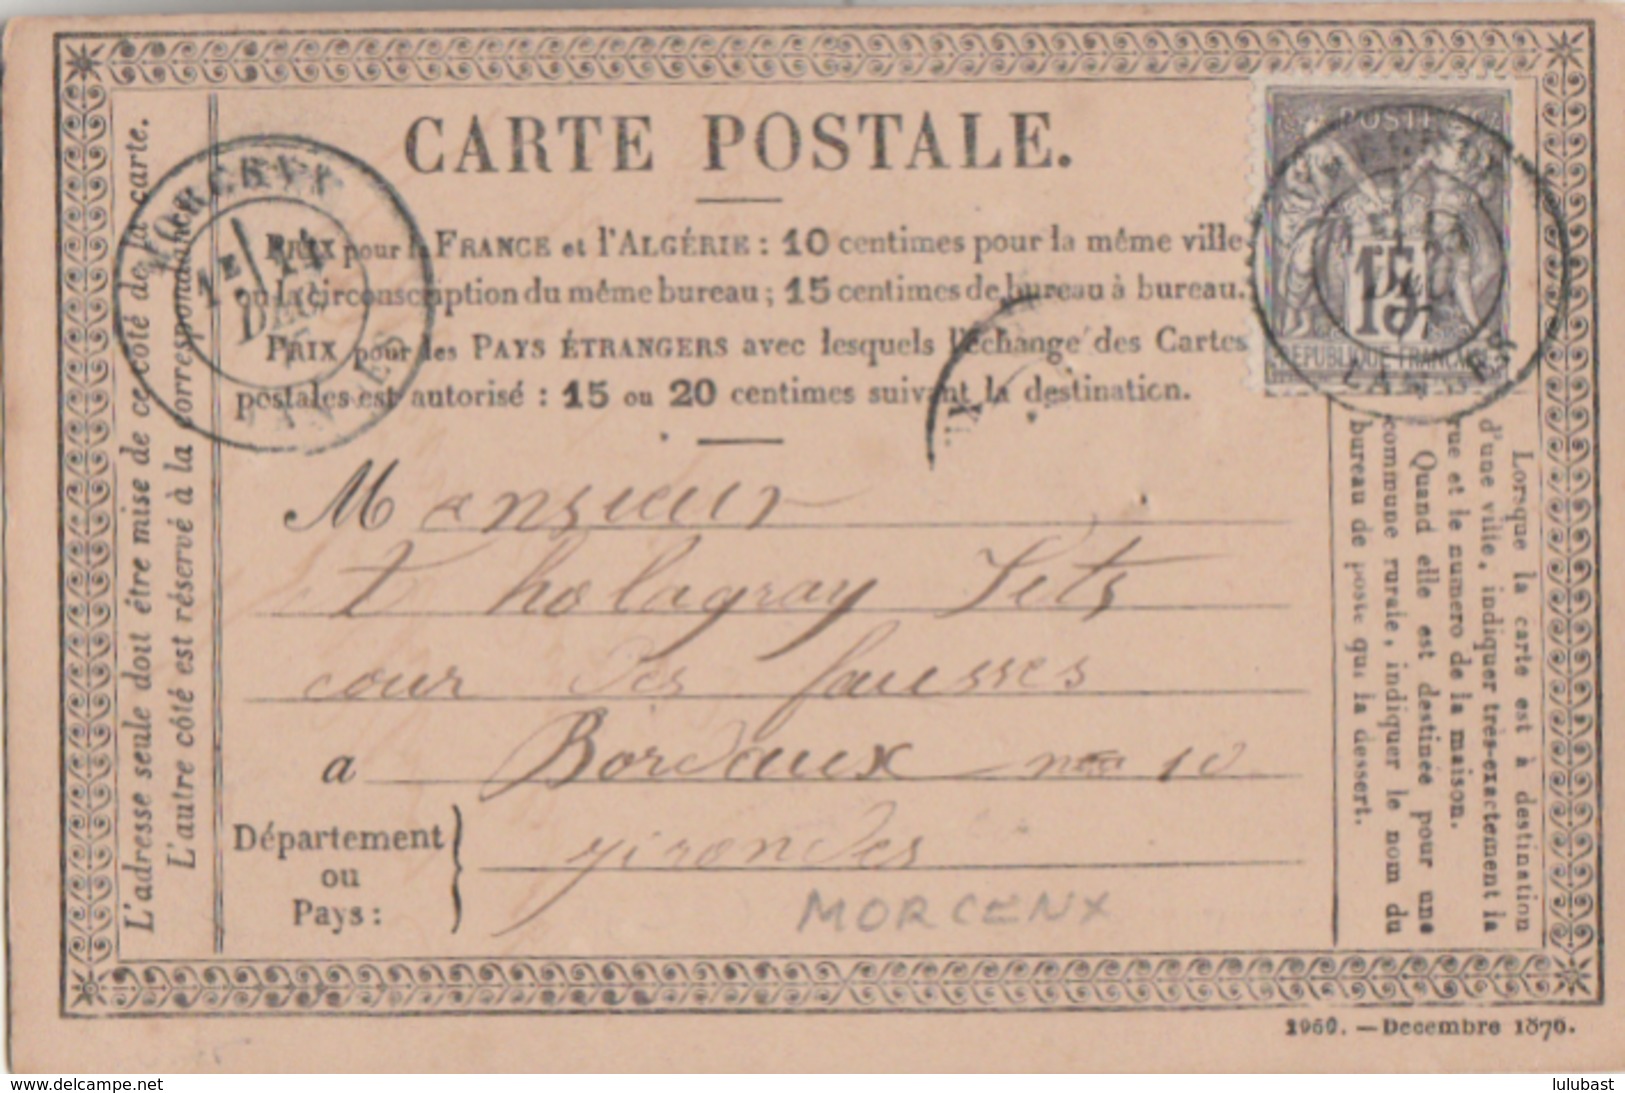 CARTE POSTALE.
PRIX pour la FRANCE et l'ALGÉRIE : 10 centimes pour la même ville
ou la circonscription du même bureau ; 15 centimes de bureau à bureau.
PRIX pour les PAYS ÉTRANGERS avec lesquels l'échange des Cartes
postales est autorisé : 15 ou 20 centimes suivant la destination.
L'adresse seule doit être mise de ce côté de la carte.
L'autre côté est réservé à la correspondance.
MORCENX
1E 14
DEC
LANDES
POSTE
15
REPUBLIQUE FRANCAISE
DEC
LANDES
UX
Monsieur
tholagray Fets
cour des fausses
a Bordeaux 10
Département
ou
Pays :
girondes
MORCENX
Lorsque la carte est à destination
d'une ville, indiquer très-exactement la
rue et le numero de la maison.
Quand elle est destinée pour une
commune rurale, indiquer le nom du
bureau de poste qui la dessert.
1960. — Decembre 1876.
www.delcampe.net
lulubast